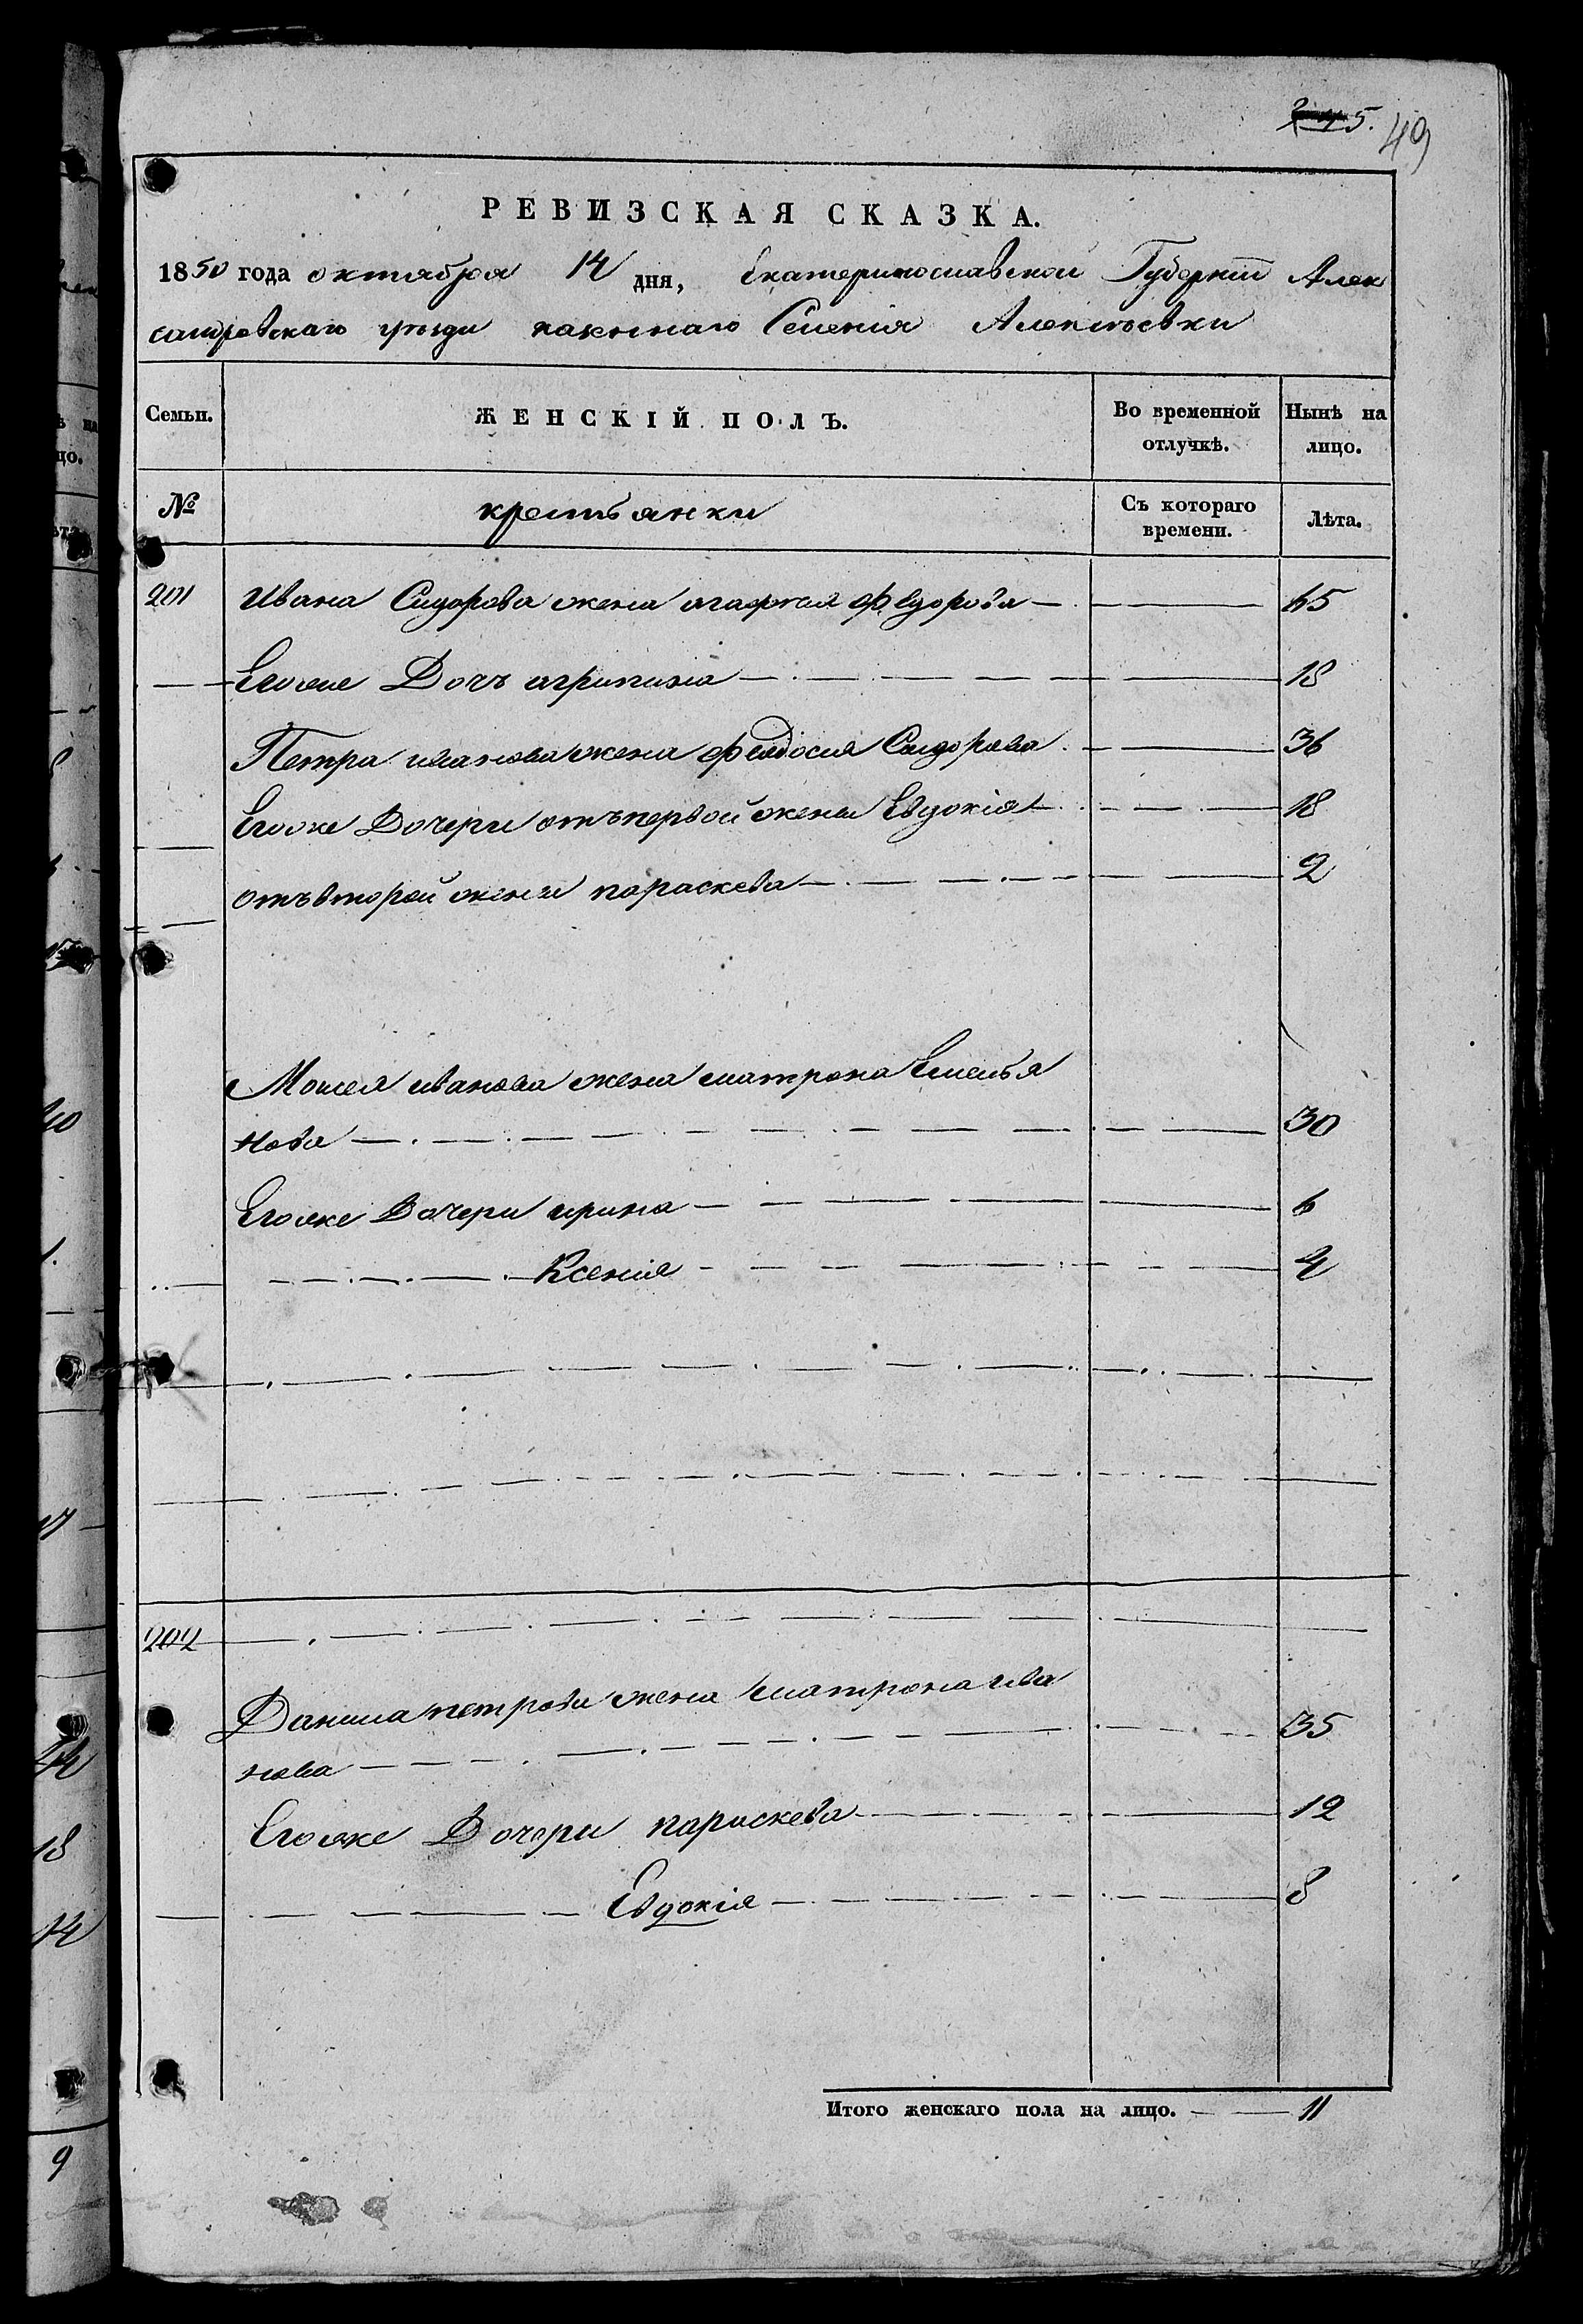 5. 49
РЕВИЗСКАЯ СКАЗКА.
1850 года октября 14 дня, Екатеринославской Губернiи Алек
сандровскаго уѣзда казеннаго Селенiя Алексѣевки
Семьи. ЖЕНСКІЙ ПОЛЪ. Во временной отлучкѣ. Нынѣ на лицо.
№ крестьянки Съ котораго времени. Лѣта.
201 Ивана Сидорова жена агафия Федорова 65
Егоже Дочь агрипина 18
Петра иванова жена феодосия Сидорова 36
Егоже Дочери отъ первой жены Евдокiя 18
отъ второй жены параскева 2
Моисея иванова жена матрона Емелья
нова 30
Егоже Дочери ирина 6
Ксения 4
202
Данила петрова жена матрона ива
нова 35
Егоже Дочери параскева 12
Евдокiя 8
Итого женскаго пола на лицо. 11